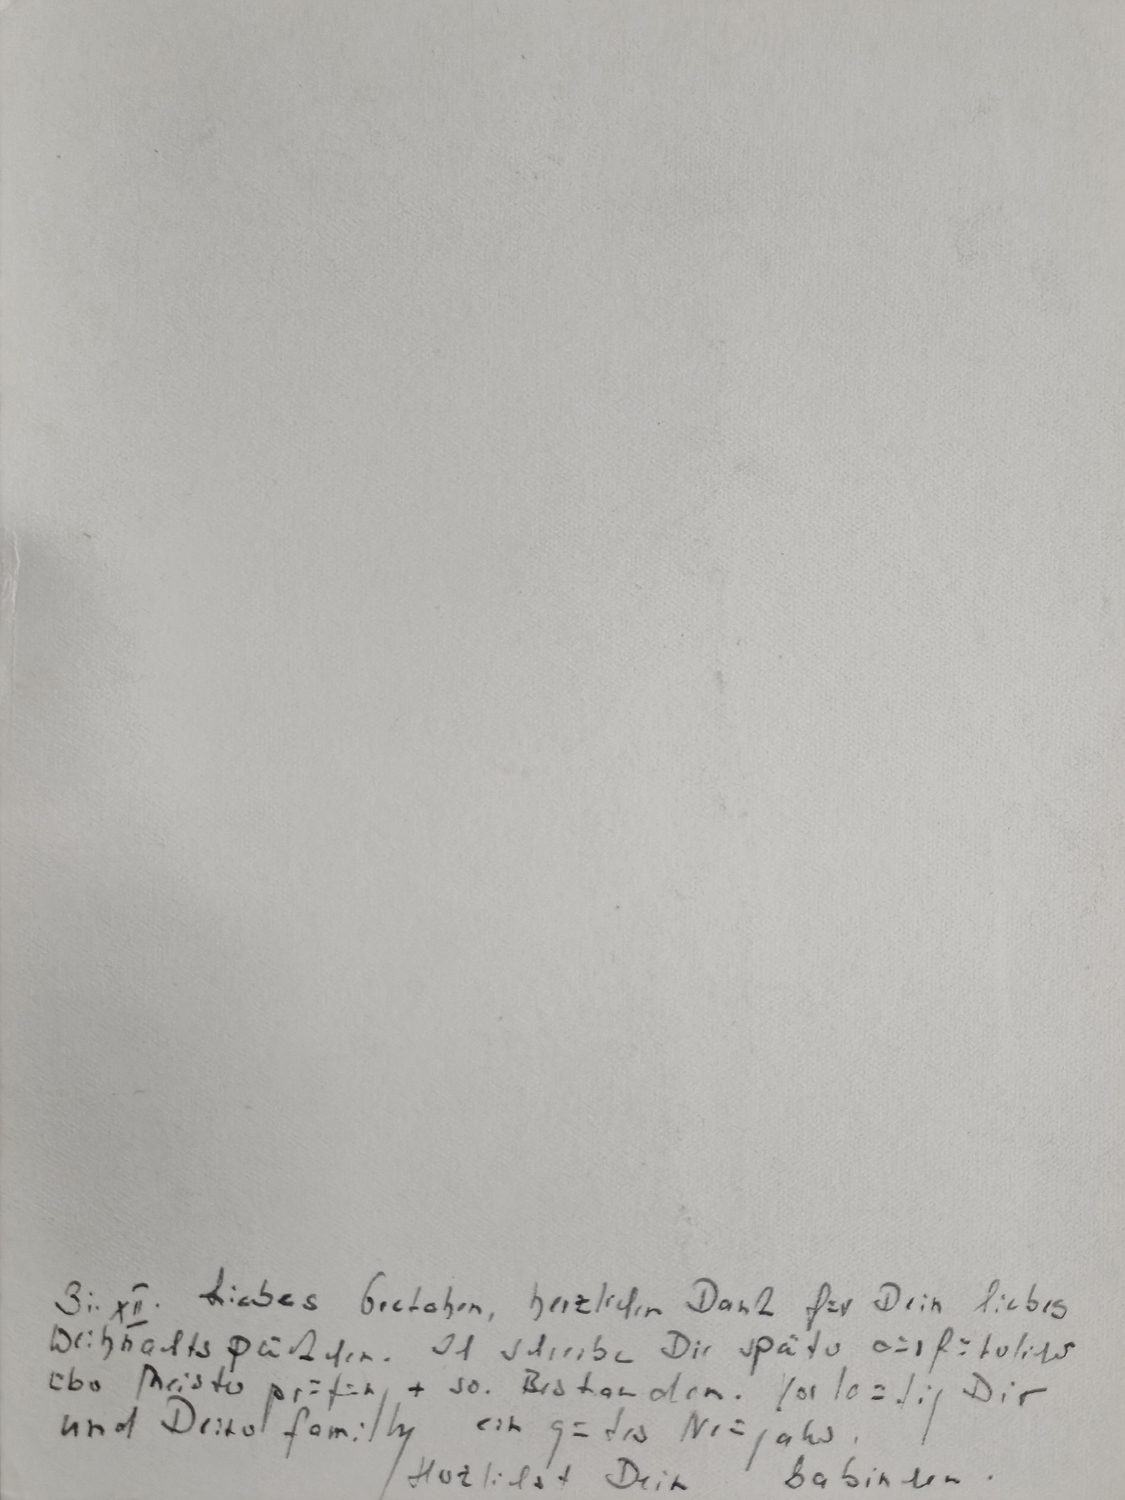 31. XII. Liebes Gretchen, herzlichen Dank für Dein liebes
Weihnachtspäckchen. Ich schreibe Dir später ausführlicher
über Meisterprüfung + so. Bestanden. Vorläufig Dir
und Deiner family ein gutes Neujahr.
Herzlichst Dein